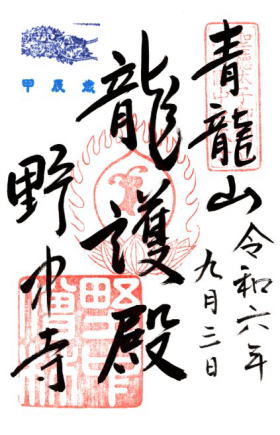 青龍山
令和六年
九月三日
龍護殿
野中寺
甲辰歳